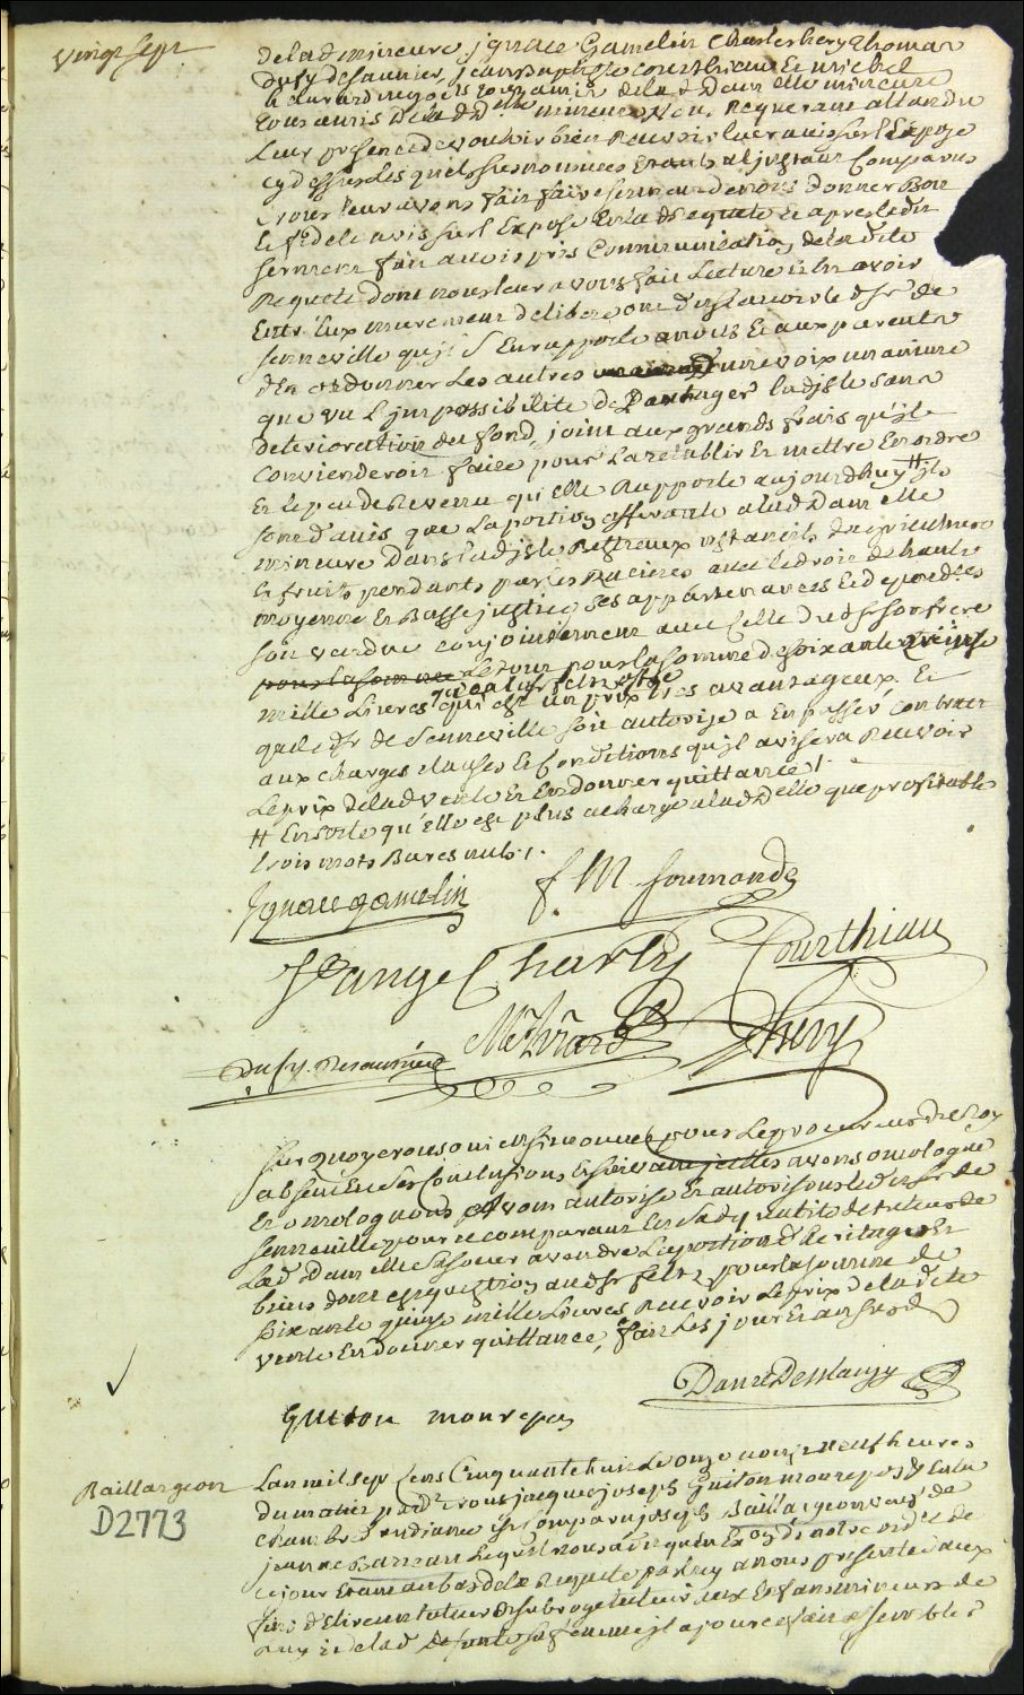 vingt sept
de lad mineure, Ignace Gamelin Charles hery Thomas
Dufy desaunier, Jean Baptiste Courthiau Et michel
tous amis de lad dam elle mineure
leur presence vouloir bien Recevoir leur avis sur l Expose
cy dessus lesquels susnommés Etants a l jnstant Comparus
Et nous leur avons fait faire serment de nous donner Bon
Et fidele avis sur l Expose En lad Requete Et apres led
serment fait avoir pris Communication de lad
Requete dont nous leur avons fait Lecture Et En avoir
Entr Eux meurement delibere ont dit savoir le d Sr de
senneville qu jl S En rapporte a nous Et aux parents
d En ordonner Les autres d une voix unanime
que vu L jmpossibilité de Partager lad jsle sans
deterioration du fond, joint aux grands frais qu jl
Conviendroit faire pour La retablir Et mettre En ordre
Et le peu de Revenu qu elle Rapporte aujourdhuy # jls
sont d avis que La portion afferante a lad dam elle
mineure Dans lad jsle Bestiaux ustancils d agriculture
Et fruits pendants par les Racines avec le droit de haute
moyenne Et Basse justice, ses appartenances Et dependces
soit vendue conjointement avec Celle dud sr son frere
pour la somme de soixante quinze
mille Livres qui est un prix tres avantageux. Et
que led Sr de Senneville soit autorisé a En passer Contract
aux charges clauses Et Conditions qu jl avisera Recevoir
Le prix de lad vente Et En donner quittance /.
# En sorte qu Elle est plus a charge a lad dlle que profitable
trois mots Bares nuls /.
Ignace gamelin
f M Soumande
St ange Charly
Courthiau
Dufy Desauniers
Hery
Sur Quoy et nous oui En sieur pour Le procureur du Roy
absent En ses Conclusions Et suivant jcelles avons omologué
Et omologuons avons autorisé Et autorisons led sr de
senneville pour ce comparant En Sad qualité de tuteur de
Lad Dam elle Sa soeur a vendre La portion d Heritages Et
biens dont Est question aud sr feltz pour la somme de
soixante quinze mille Livres Recevoir Le prix de lad
vente En donner quittance, fait Les jour Et an susd
Danré De Blanzy
Guiton monrepos
Baillargeon
D2773
Lan mil sept Cens Cinquante huit Le onze neuf heures
du matin pardt nous jacques joseph Guiton monrepos En la
chambre d audiance Est Comparu joseph Baillargeon veuf de
jeanne Barreau Lequel nous a dit qu En Exon de notre ordce de
ce jour Etant au bas de la Requete par luy a nous presentée aux
fins d Elire un tuteur Et subrogé tuteur aux Enfans mineurs de
luy Et de lad defunte sa femme jl a jource fait assembler